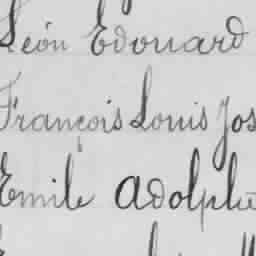 Léon Edouard
François Louis Jos
Emile Adolphe